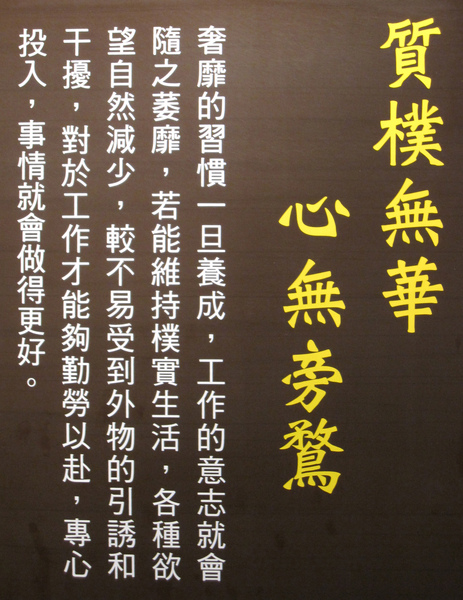 質樸無華
心無旁鶩
奢靡的習慣一旦養成，工作的意志就會
隨之萎靡，若能維持樸實生活，各種欲
望自然減少，較不易受到外物的引誘和
干擾，對於工作才能夠勤勞以赴，專心
投入，事情就會做得更好。